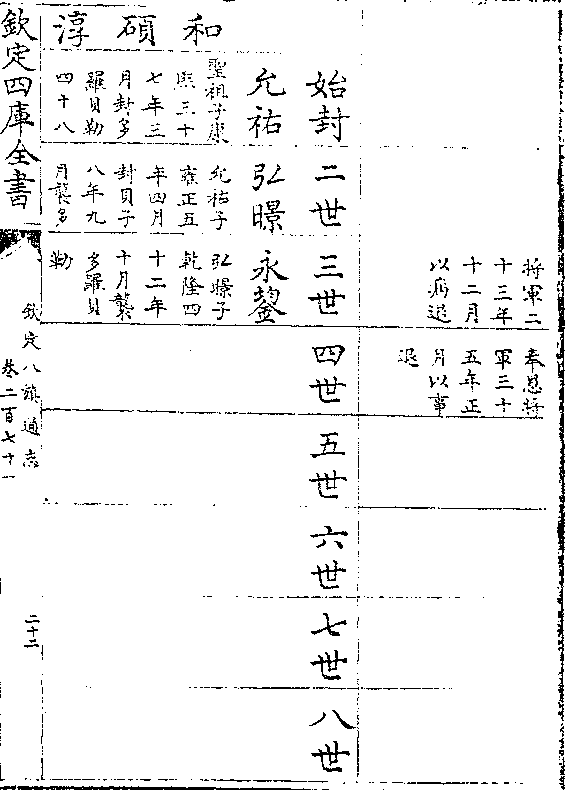 將軍二
十三年
十二月
以病退
奉恩將
軍三十
五年正
月以事
退
和碩淳
始封
允祐
聖祖子康
熙三十
七年三
月封多
羅貝勒
四十八
二世
弘暻
允祐子
雍正五
年四月
封貝子
八年九
月襲多
三世
永鋆
弘暻子
乾隆四
十二年
十月襲
多羅貝
勒
四世
五世
六世
七世
八世
欽定四庫全書
欽定八旗通志
卷二百七十一
二十二